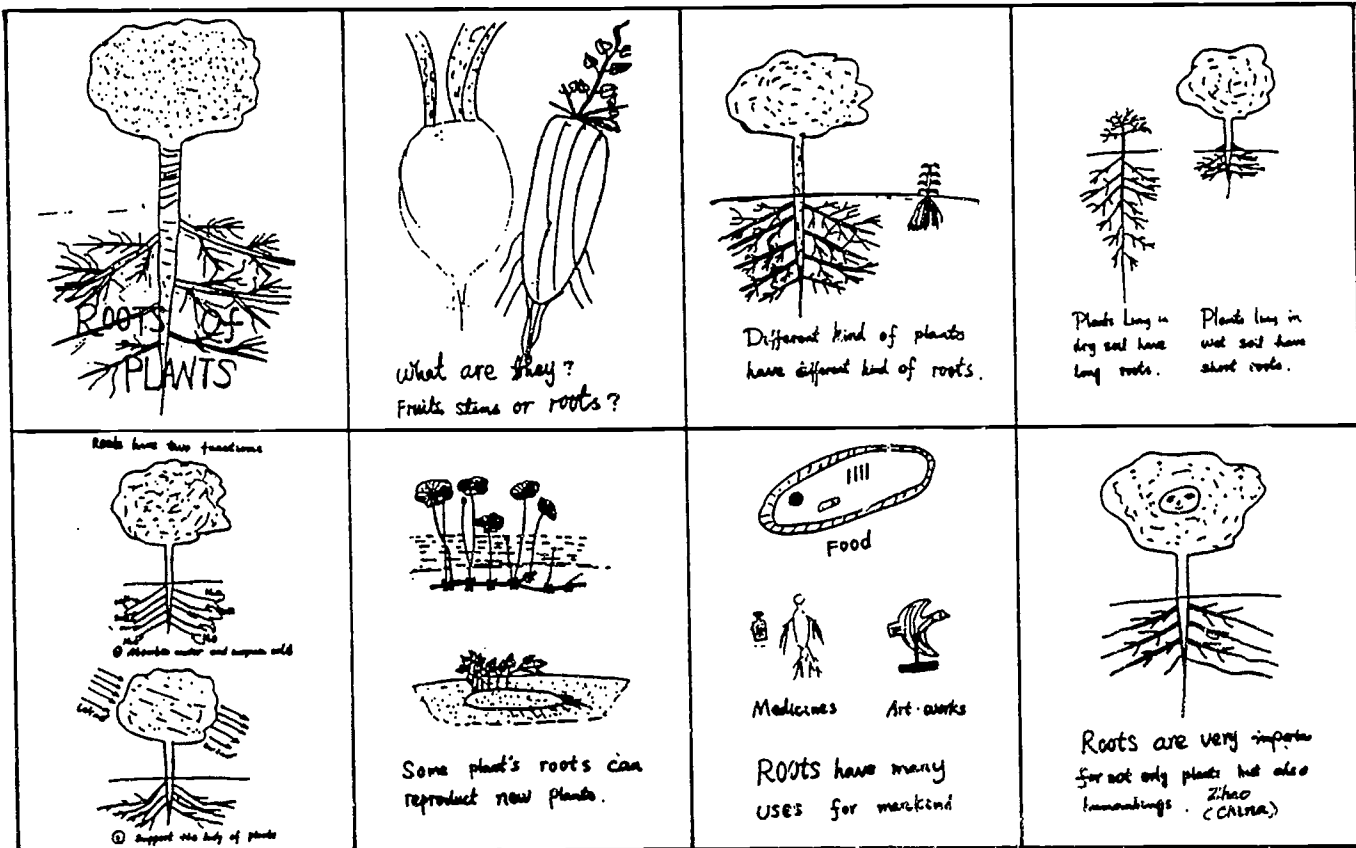 ROOTS Of
PLANTS
What are they?
Fruits, stems or roots?
Different kind of plants
have different kind of roots.
Plants living in
dry soil have
long roots.
Plants living in
wet soil have
short roots.
Roots have two functions
① Absorbe water and
② Support the body of plants
Some plant's roots can
reproduct new plants.
Food
Medicines
Art-works
ROOTS have many
USES for mankind
Roots are very
for not only plants but also
Zihao
(CHINA)